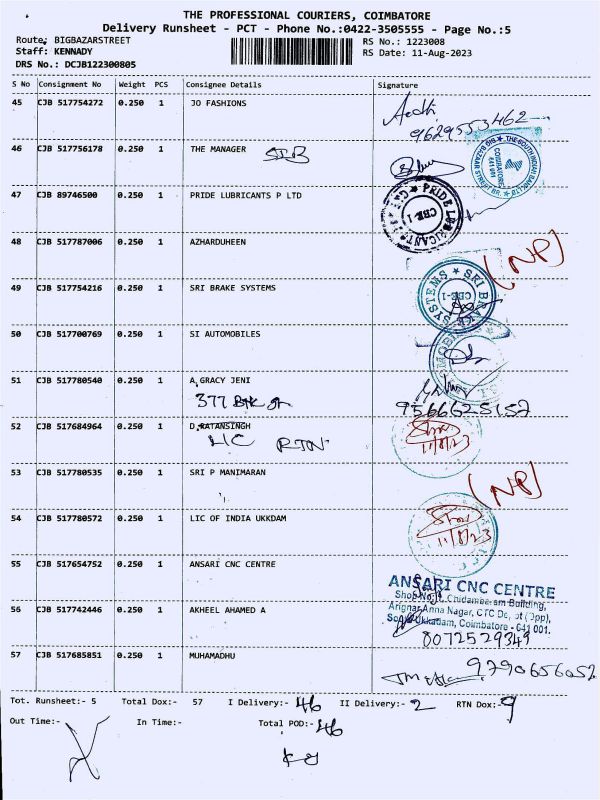 THE PROFESSIONAL COURIERS, COIMBATORE
Delivery Runsheet - PCT - Phone No.:0422-3505555 - Page No.:5
Route: BIGBAZARSTREET
RS No.: 1223008
Staff: KENNADY
RS Date: 11-Aug-2023
DRS No.: DCJB122300805
S No Consignment No Weight PCS Consignee Details Signature
45 CJB 517754272 0.250 1 JO FASHIONS
9629553462
46 CJB 517756178 0.250 1 THE MANAGER SIB
THE SOUTH INDIAN BANK LTD BIG BAZAAR STREET BR. COIMBATORE 641 001
47 CJB 89746500 0.250 1 PRIDE LUBRICANTS P LTD
PRIDE LUBRICANTS CBE-1
48 CJB 517787006 0.250 1 AZHARDUHEEN
(NP)
49 CJB 517754216 0.250 1 SRI BRAKE SYSTEMS
SRI BRAKE SYSTEMS CBE-1
50 CJB 517700769 0.250 1 SI AUTOMOBILES
51 CJB 517780540 0.250 1 A,GRACY JENI
377
9566625152
52 CJB 517684964 0.250 1 D.RATANSINGH
LIC RTN
11/8/23
53 CJB 517780535 0.250 1 SRI P MANIMARAN
(NP)
54 CJB 517780572 0.250 1 LIC OF INDIA UKKDAM
11/8/23
55 CJB 517654752 0.250 1 ANSARI CNC CENTRE
ANSARI CNC CENTRE
Chidambaram Building,
56 CJB 517742446 0.250 1 AKHEEL AHAMED A
Arignar Anna Nagar, CTC Depot (Opp),
Ukkadam, Coimbatore - 641 001.
8072529349
57 CJB 517685851 0.250 1 MUHAMADHU
9790656052
Tot. Runsheet:- 5 Total Dox:- 57 I Delivery:- 46 II Delivery:- 2 RTN Dox:- 9
Out Time:- In Time:- Total POD:- 46